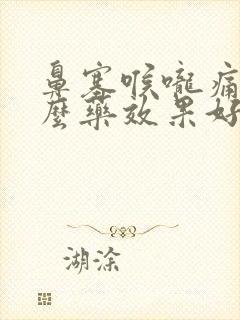 鼻塞喉嚨痛
麼藥效果好
湖涂